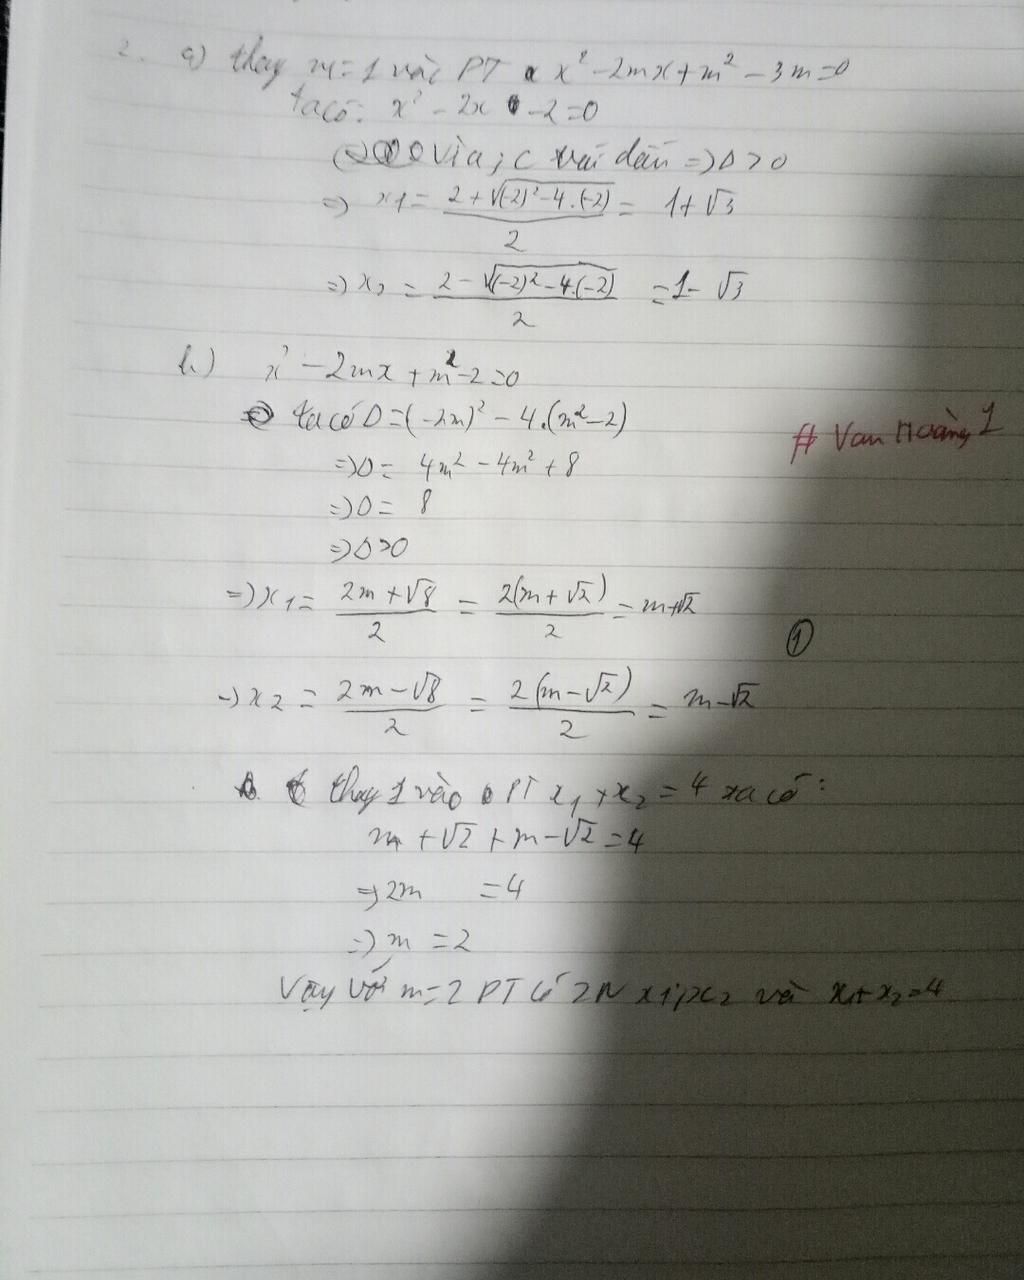 2. a) thay m=1 vào PT x² - 2mx + m² - 3m = 0
ta có: x² - 2x - 2 = 0
vì a; c trái dấu => Δ > 0
=> x1 = (2 + √((-2)² - 4.(-2)))/2 = 1 + √3
=> x2 = (2 - √((-2)² - 4.(-2)))/2 = 1 - √3
b.) x² - 2mx + m² - 2 = 0
ta có Δ = (-2m)² - 4.(m² - 2)
# Van Hoàng 1
=> Δ = 4m² - 4m² + 8
=> Δ = 8
=> Δ > 0
=> x1 = (2m + √8)/2 = 2(m + √2)/2 = m + √2
①
-) x2 = (2m - √8)/2 = 2(m - √2)/2 = m - √2
thay 1 vào PT x1 + x2 = 4 ta có:
m + √2 + m - √2 = 4
=> 2m = 4
=> m = 2
Vậy với m = 2 PT có 2N x1; x2 và x1 + x2 = 4